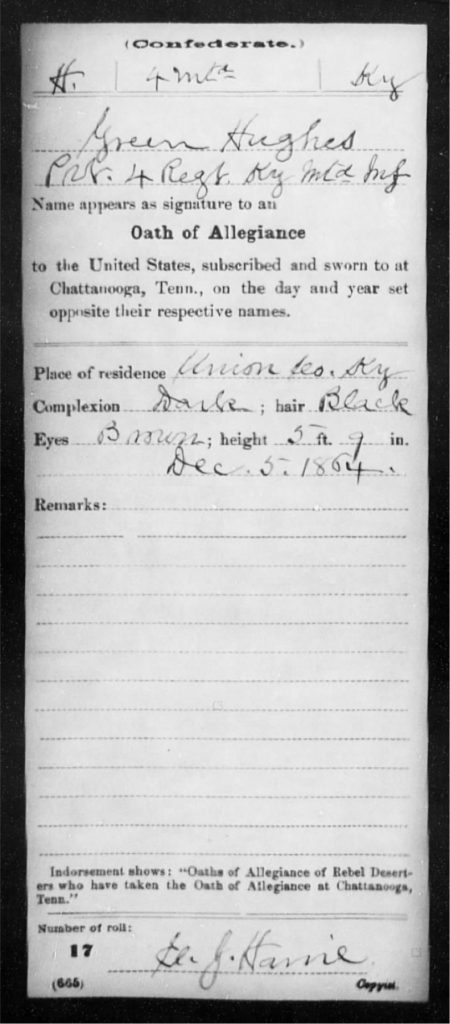 (Confederate.)
H. | 4 Mtd | Ky
Green Hughes
Pvt. 4 Regt. Ky Mtd Inf
Name appears as signature to an
Oath of Allegiance
to the United States, subscribed and sworn to at
Chattanooga, Tenn., on the day and year set
opposite their respective names.
Place of residence Union Co. Ky
Complexion Dark; hair Black
Eyes Brown; height 5 ft. 9 in.
Dec. 5. 1864.
Remarks:
Indorsement shows: "Oaths of Allegiance of Rebel Desert-
ers who have taken the Oath of Allegiance at Chattanooga,
Tenn."
Number of roll:
17
J.
(665) Copyist.